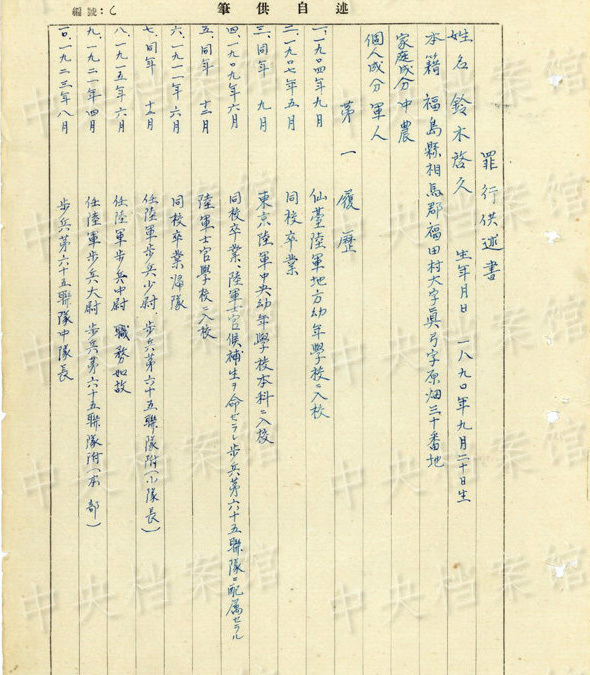 編號:乙
述自供筆
罪行供述書
姓名 鈴木啓久 生年月日 一八九〇年九月二十日生
本籍 福島縣相馬郡福田村大字眞弓字原畑三十番地
家庭成分 中農
個人成分 軍人
第一 履歷
一、一九〇四年九月 仙臺陸軍地方幼年學校ニ入校
二、一九〇七年五月 同校卒業
三、同年 九月 東京陸軍中央幼年學校本科ニ入校
四、一九〇九年六月 同校卒業、陸軍士官候補生ヲ命ゼラレ步兵第六十五聯隊ニ配属セラル
五、同年 十二月 陸軍士官學校ニ入校
六、一九一一年六月 同校卒業歸隊
七、同年 十二月 任陸軍步兵少尉、步兵第六十五聯隊附(小隊長)
八、一九一五年六月 任陸軍步兵中尉 職務如故
九、一九二一年四月 任陸軍步兵大尉 步兵第六十五聯隊附(本部)
一〇、一九二三年八月 步兵第六十五聯隊中隊長
中央档案馆